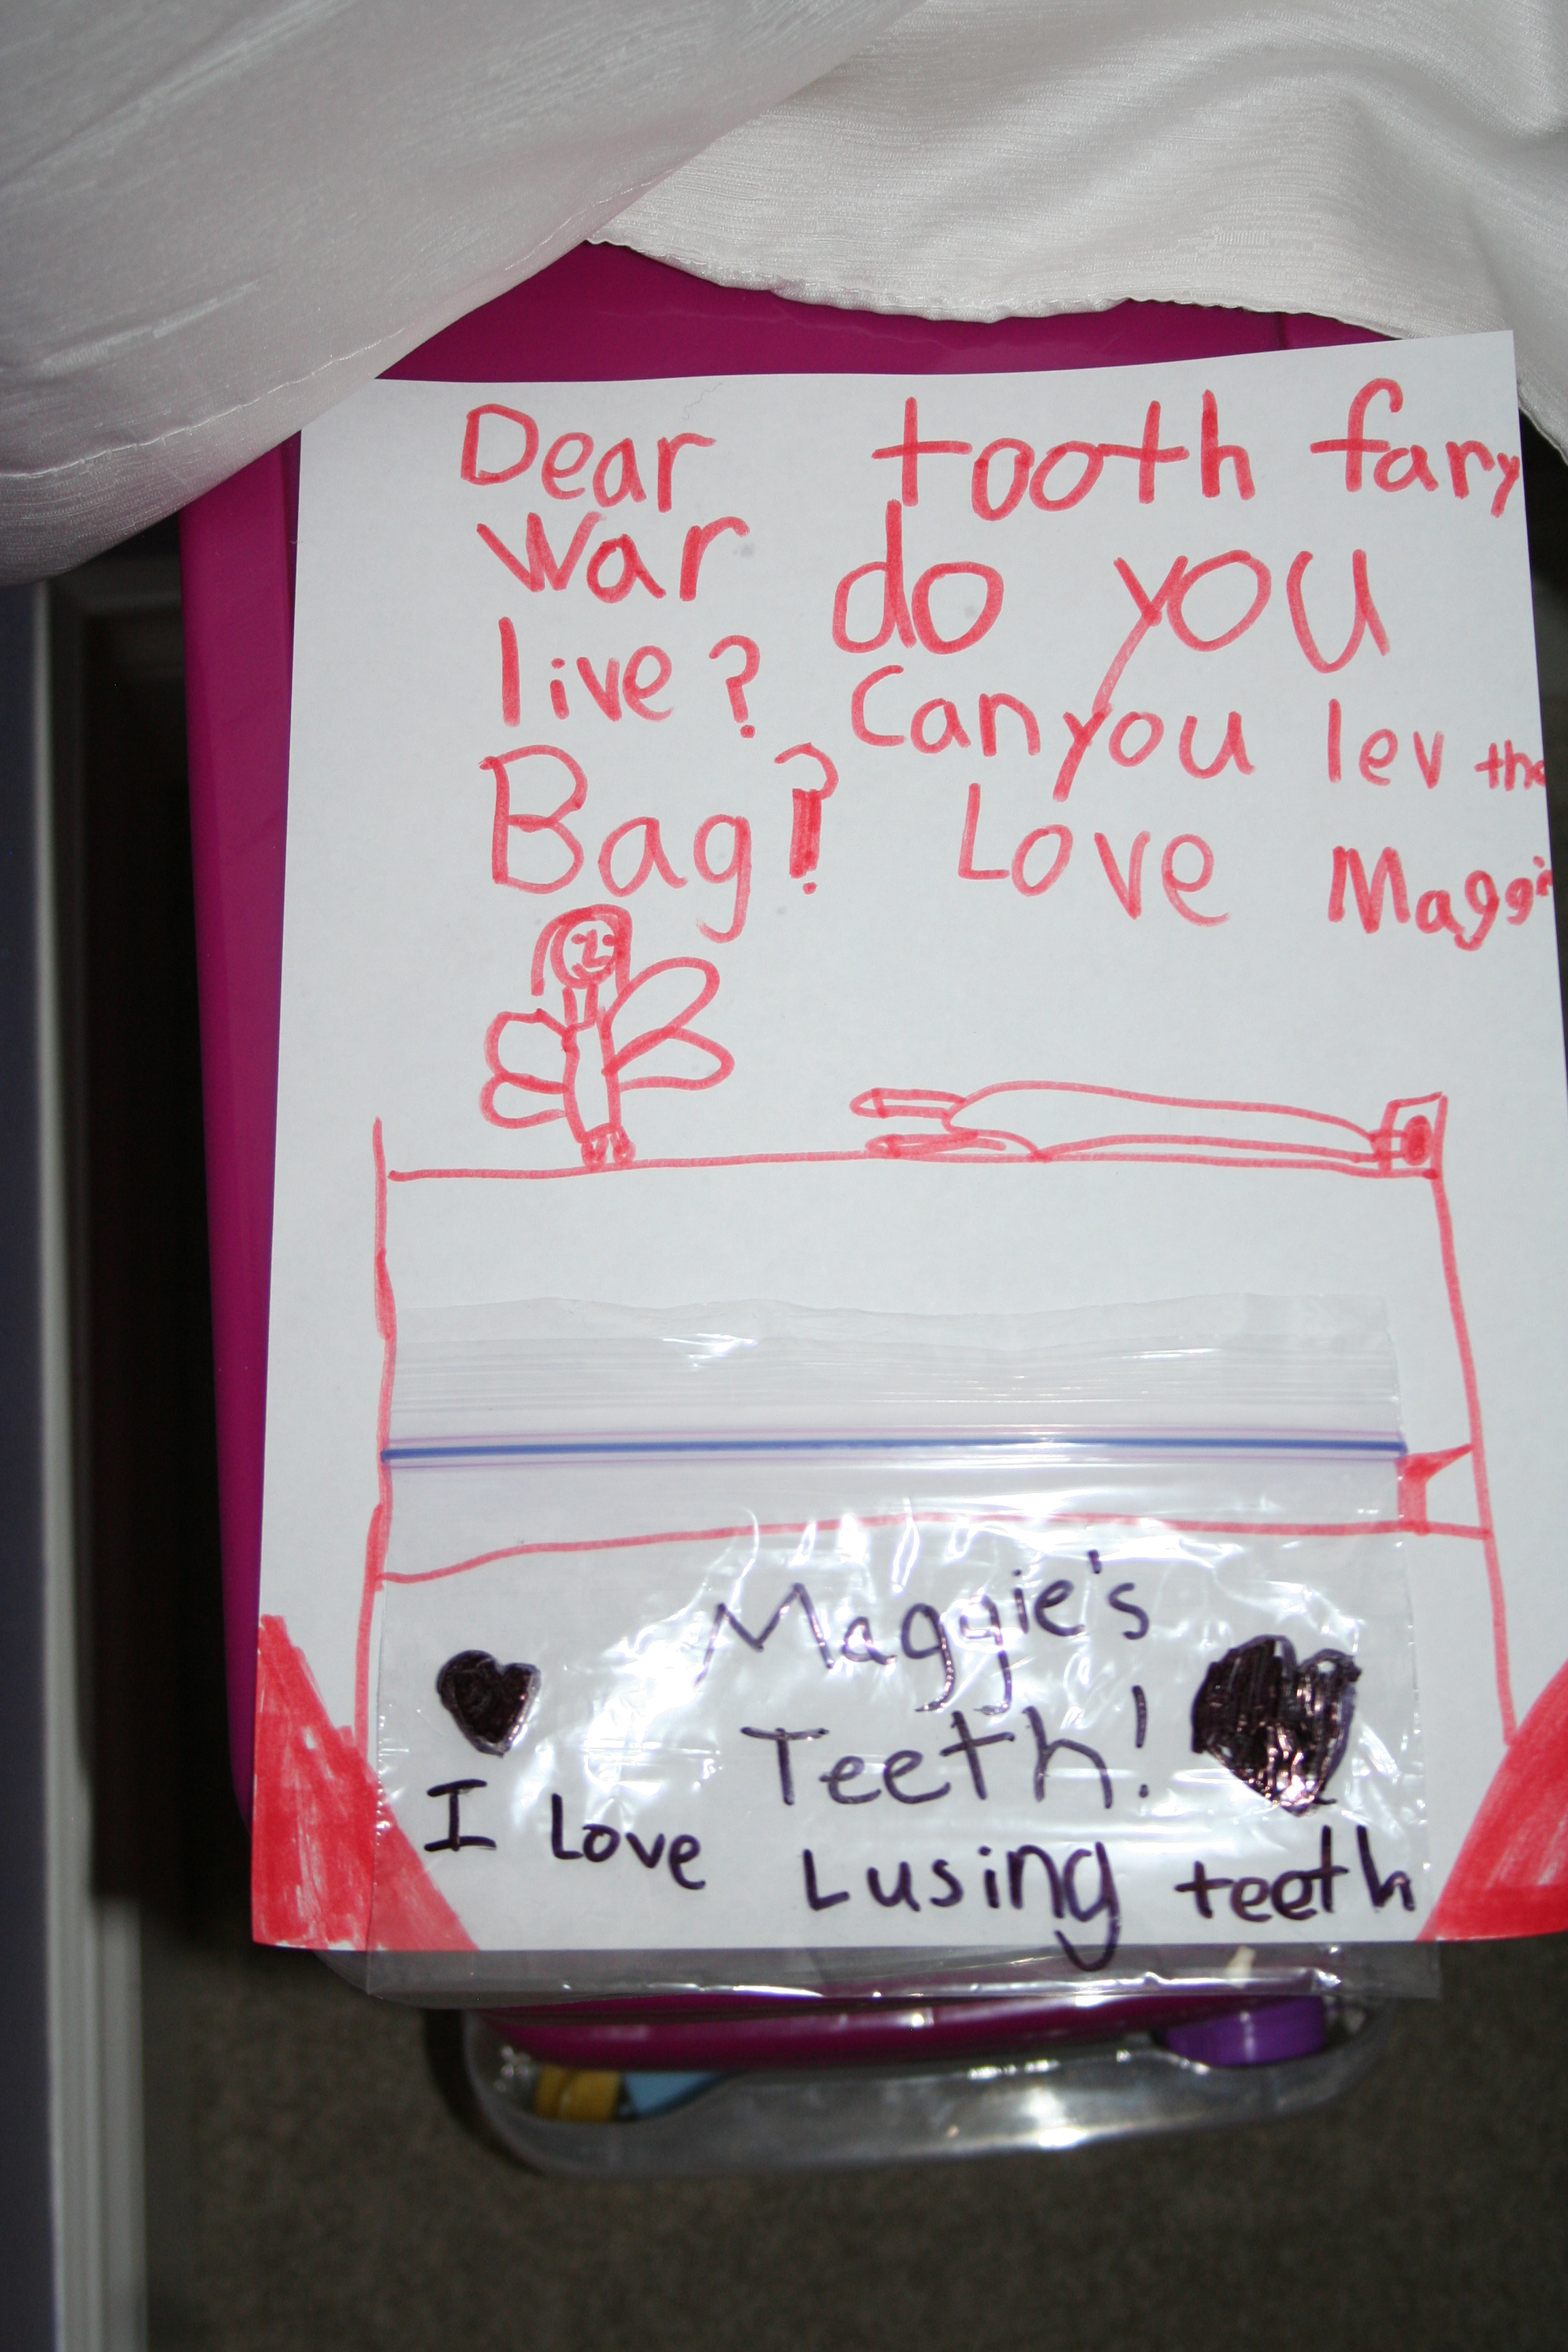 Dear tooth fary
War do you
live? Can you lev the
Bag? Love Maggie
Maggie's
Teeth!
I Love Lusing teeth